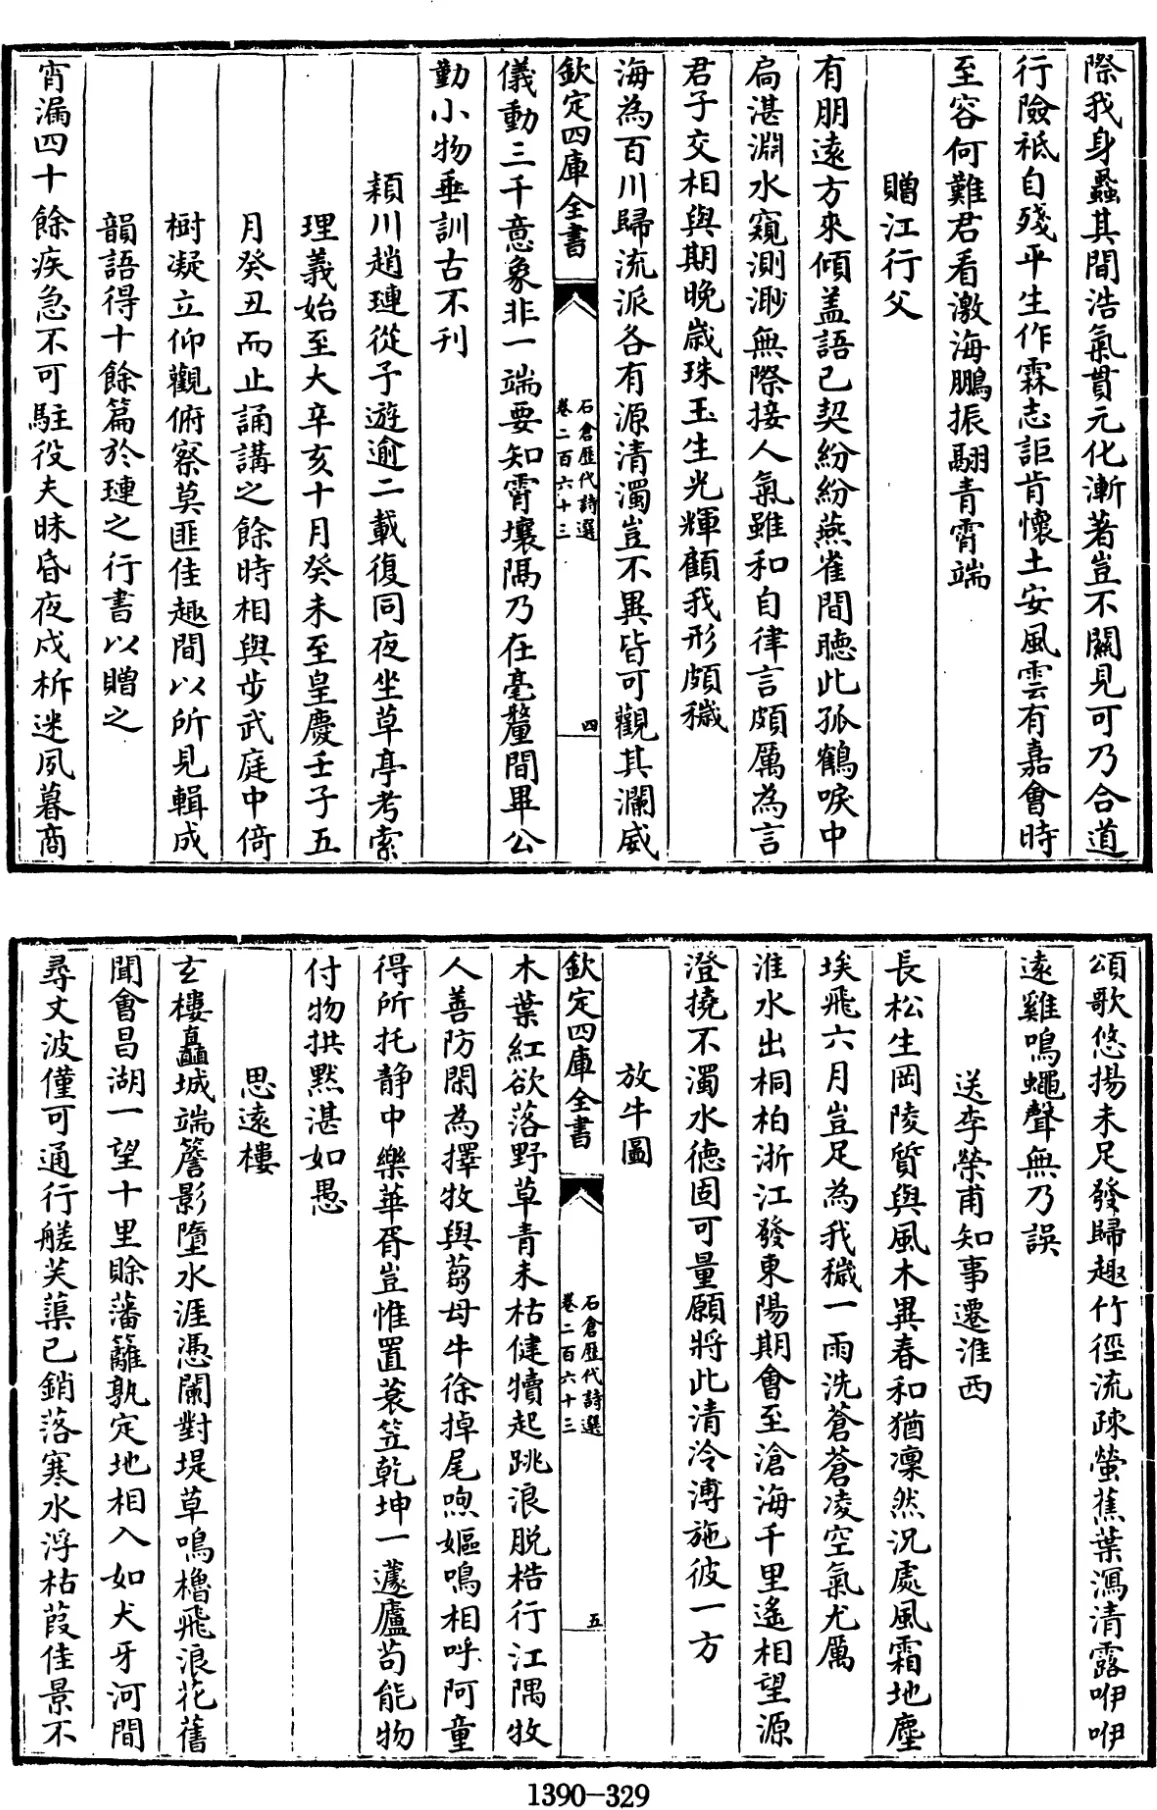 際我身蝨其間浩氣貫元化漸著豈不闗見可乃合道
行險祗自殘平生作霖志詎肯懷土安風雲有嘉會時
至容何難君看激海鵬振翮青霄端
贈江行父
有朋遠方來傾盖語已契紛紛燕雀間聽此孤鶴唳中
扃湛淵水窺測渺無際接人氣雖和自律言頗厲為言
君子交相與期晚歳珠玉生光輝顧我形頗穢
海為百川歸流派各有源清濁豈不異皆可觀其瀾威
欽定四庫全書
石倉歷代詩選
卷二百六十三
四
儀動三千意象非一端要知霄壤隔乃在毫釐間畢公
勤小物垂訓古不刊
頴川趙璉從子遊逾二載復同夜坐草亭考索
理義始至大辛亥十月癸未至皇慶壬子五
月癸丑而止誦講之餘時相與步武庭中倚
樹凝立仰觀俯察莫匪佳趣間以所見輯成
韻語得十餘篇於璉之行書以贈之
宵漏四十餘疾急不可駐役夫昧昏夜戍柝迷夙暮商
頌歌悠揚未足發歸趣竹徑流疎螢蕉葉濕清露咿咿
遠雞鳴蠅聲無乃誤
送李榮甫知事遷淮西
長松生岡陵質與風木異春和猶凜然況處風霜地塵
埃飛六月豈足為我穢一雨洗蒼蒼凌空氣尤厲
淮水出桐柏浙江發東陽期會至滄海千里遙相望源
澄撓不濁水德固可量願將此清泠溥施彼一方
放牛圖
欽定四庫全書
石倉歷代詩選
卷二百六十三
五
木葉紅欲落野草青未枯健犢起跳浪脱梏行江隅牧
人善防閑為擇牧與芻母牛徐掉尾喣嫗鳴相呼阿童
得所托静中樂華胥豈惟置蓑笠乾坤一蘧廬茍能物
付物拱黙湛如愚
思遠樓
玄樓矗城端簷影墮水涯憑闌對堤草鳴櫓飛浪花舊
聞會昌湖一望十里賒藩籬孰定地相入如犬牙河間
尋丈波僅可通行艖芙蕖已銷落寒水浮枯葭佳景不
1390—329